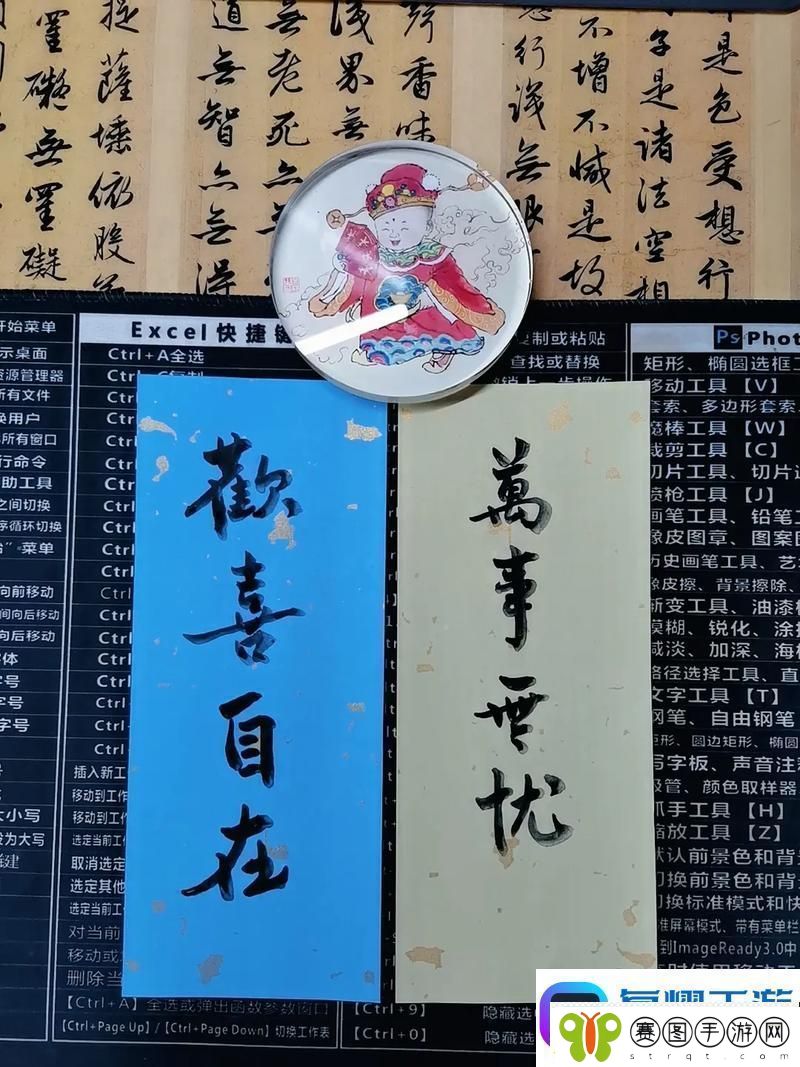 是色受想行
子是諸法空相
不增不減是故
行識無眼
聲香味
識界無
無老死亦無
道無智亦無得
提薩埵依般
罣礙無罣礙
萬事無忧
歡喜自在
开始菜单
示桌面
资源管理器
所有文件
换用户
所有窗口
行命令
助工具
之间切换
序循环切换
菜单
向前移动
间向后移动
向后移动
字体
字号
字号
字号
大小写
设为大写
Excel快捷键
Ctrl+A全选
Ctrl+C复制
插入新工
移动到工作
移动到工作
选定当前工作
取消选定
选定其他
选定当前工作
对当前
移动或
删除当
【Ctrl+A】全选或弹出函数参数窗口
【Ctrl+Page Up】/【Ctrl+Page Down】切换工作表
复制或粘贴
查找或替换
撤销上一步操作
【Ctrl+9】
隐藏选
【Ctrl+0】
隐藏选
Ps Phot
矩形、椭圆选框工
移动工具【V】
套索、多边形套索、
魔棒工具【W】
裁剪工具【C】
切片工具、切片选
喷枪工具【J】
画笔工具、铅笔工
橡皮图章、图案图
历史画笔工具、艺
橡皮擦、背景擦除、
渐变工具、油漆桶
模糊、锐化、涂抹
减淡、加深、海棉
路径选择工具、直
文字工具【T】
钢笔、自由钢笔
矩形、圆边矩形、椭圆
写字板、声音注释
吸管、颜色取样器
抓手工具【H】
缩放工具【Z】
默认前景色和背景
切换前景色和背景
切换标准模式和快
标准屏幕模式、带有菜单栏
到ImageReady3.0中
赛图手游网
strqt.com